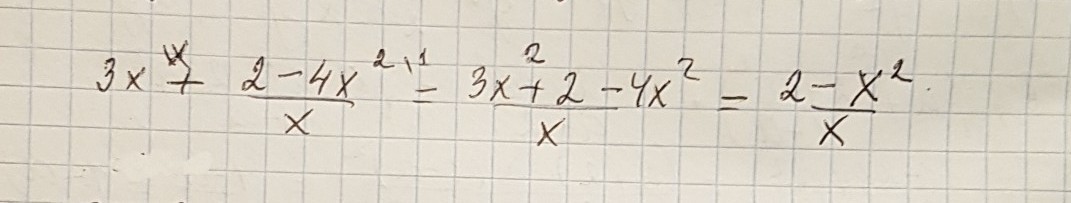 3x^{\x} + \frac{2-4x^{2\1}}{x} = \frac{3x^2+2-4x^2}{x} = \frac{2-x^2}{x}.